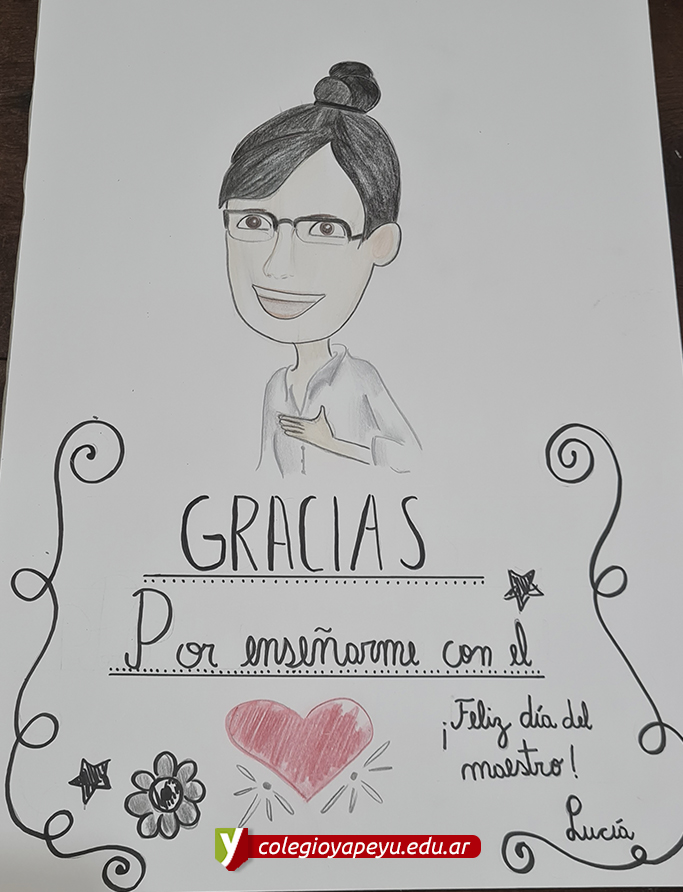 GRACIAS
Por enseñarme con el
¡Feliz día del
maestro!
Lucía
y colegioyapeyu.edu.ar